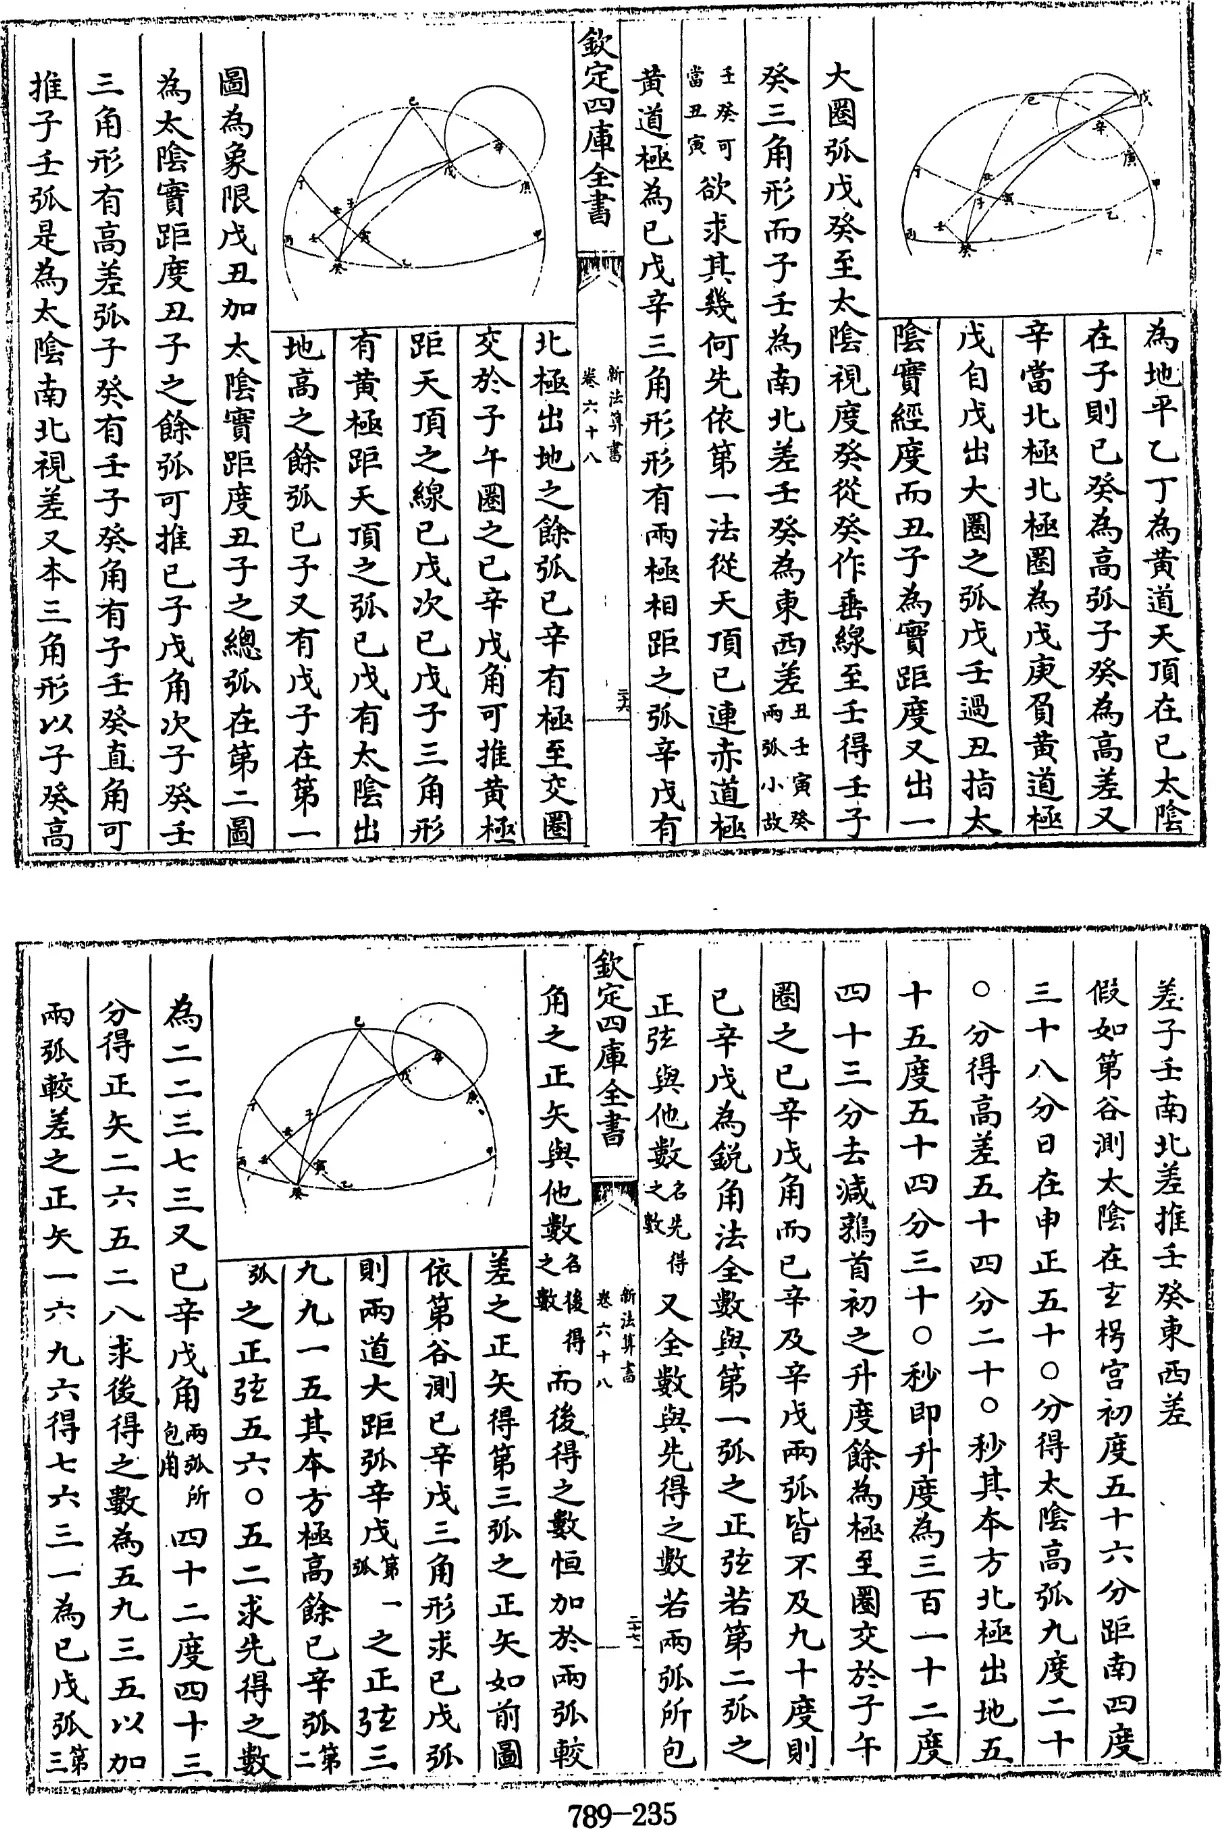 為地平乙丁為黄道天頂在已太陰
在子則已癸為高弧子癸為高差又
辛當北極北極圈為戊庚負黄道極
戊自戊出大圈之弧戊壬過丑指太
陰實經度而丑子為實距度又出一
大圈弧戊癸至太陰視度癸從癸作垂線至壬得壬子
癸三角形而子壬為南北差壬癸為東西差丑壬寅癸兩弧小故
壬癸可當丑寅欲求其幾何先依第一法從天頂已連赤道極
黄道極為已戊辛三角形形有兩極相距之弧辛戊有
欽定四庫全書
新法算書
卷六十八
二十六
北極出地之餘弧已辛有極至交圈
交於子午圈之已辛戊角可推黄極
距天頂之線已戊次已戊子三角形
有黄極距天頂之弧已戊有太陰出
地高之餘弧已子又有戊子在第一
圖為象限戊丑加太陰實距度丑子之總弧在第二圖
為太陰實距度丑子之餘弧可推已子戊角次子癸壬
三角形有高差弧子癸有壬子癸角有子壬癸直角可
推子壬弧是為太陰南北視差又本三角形以子癸高
差子壬南北差推壬癸東西差
假如第谷測太陰在玄枵宫初度五十六分距南四度
三十八分日在申正五十〇分得太陰高弧九度二十
〇分得高差五十四分二十〇秒其本方北極出地五
十五度五十四分三十〇秒即升度為三百一十二度
四十三分去減鶉首初之升度餘為極至圈交於子午
圈之已辛戊角而已辛及辛戊兩弧皆不及九十度則
已辛戊為鋭角法全數與第一弧之正弦若第二弧之
正弦與他數名先得之數又全數與先得之數若兩弧所包
欽定四庫全書
新法算書
卷六十八
二十七
角之正矢與他數名後得之數而後得之數恒加於兩弧較
差之正矢得第三弧之正矢如前圖
依第谷測已辛戊三角形求已戊弧
則兩道大距弧辛戊第一弧之正弦三
九九一五其本方極高餘已辛弧第二
弧之正弦五六〇五二求先得之數
為二二三七三又已辛戊角兩弧所包角四十二度四十三
分得正矢二六五二八求後得之數為五九三五以加
兩弧較差之正矢一六九六得七六三一為已戊弧第三
789-235